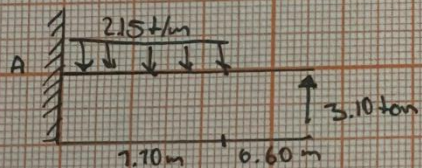 2.15 t/m
A
3.10 ton
1.70 m
0.60 m